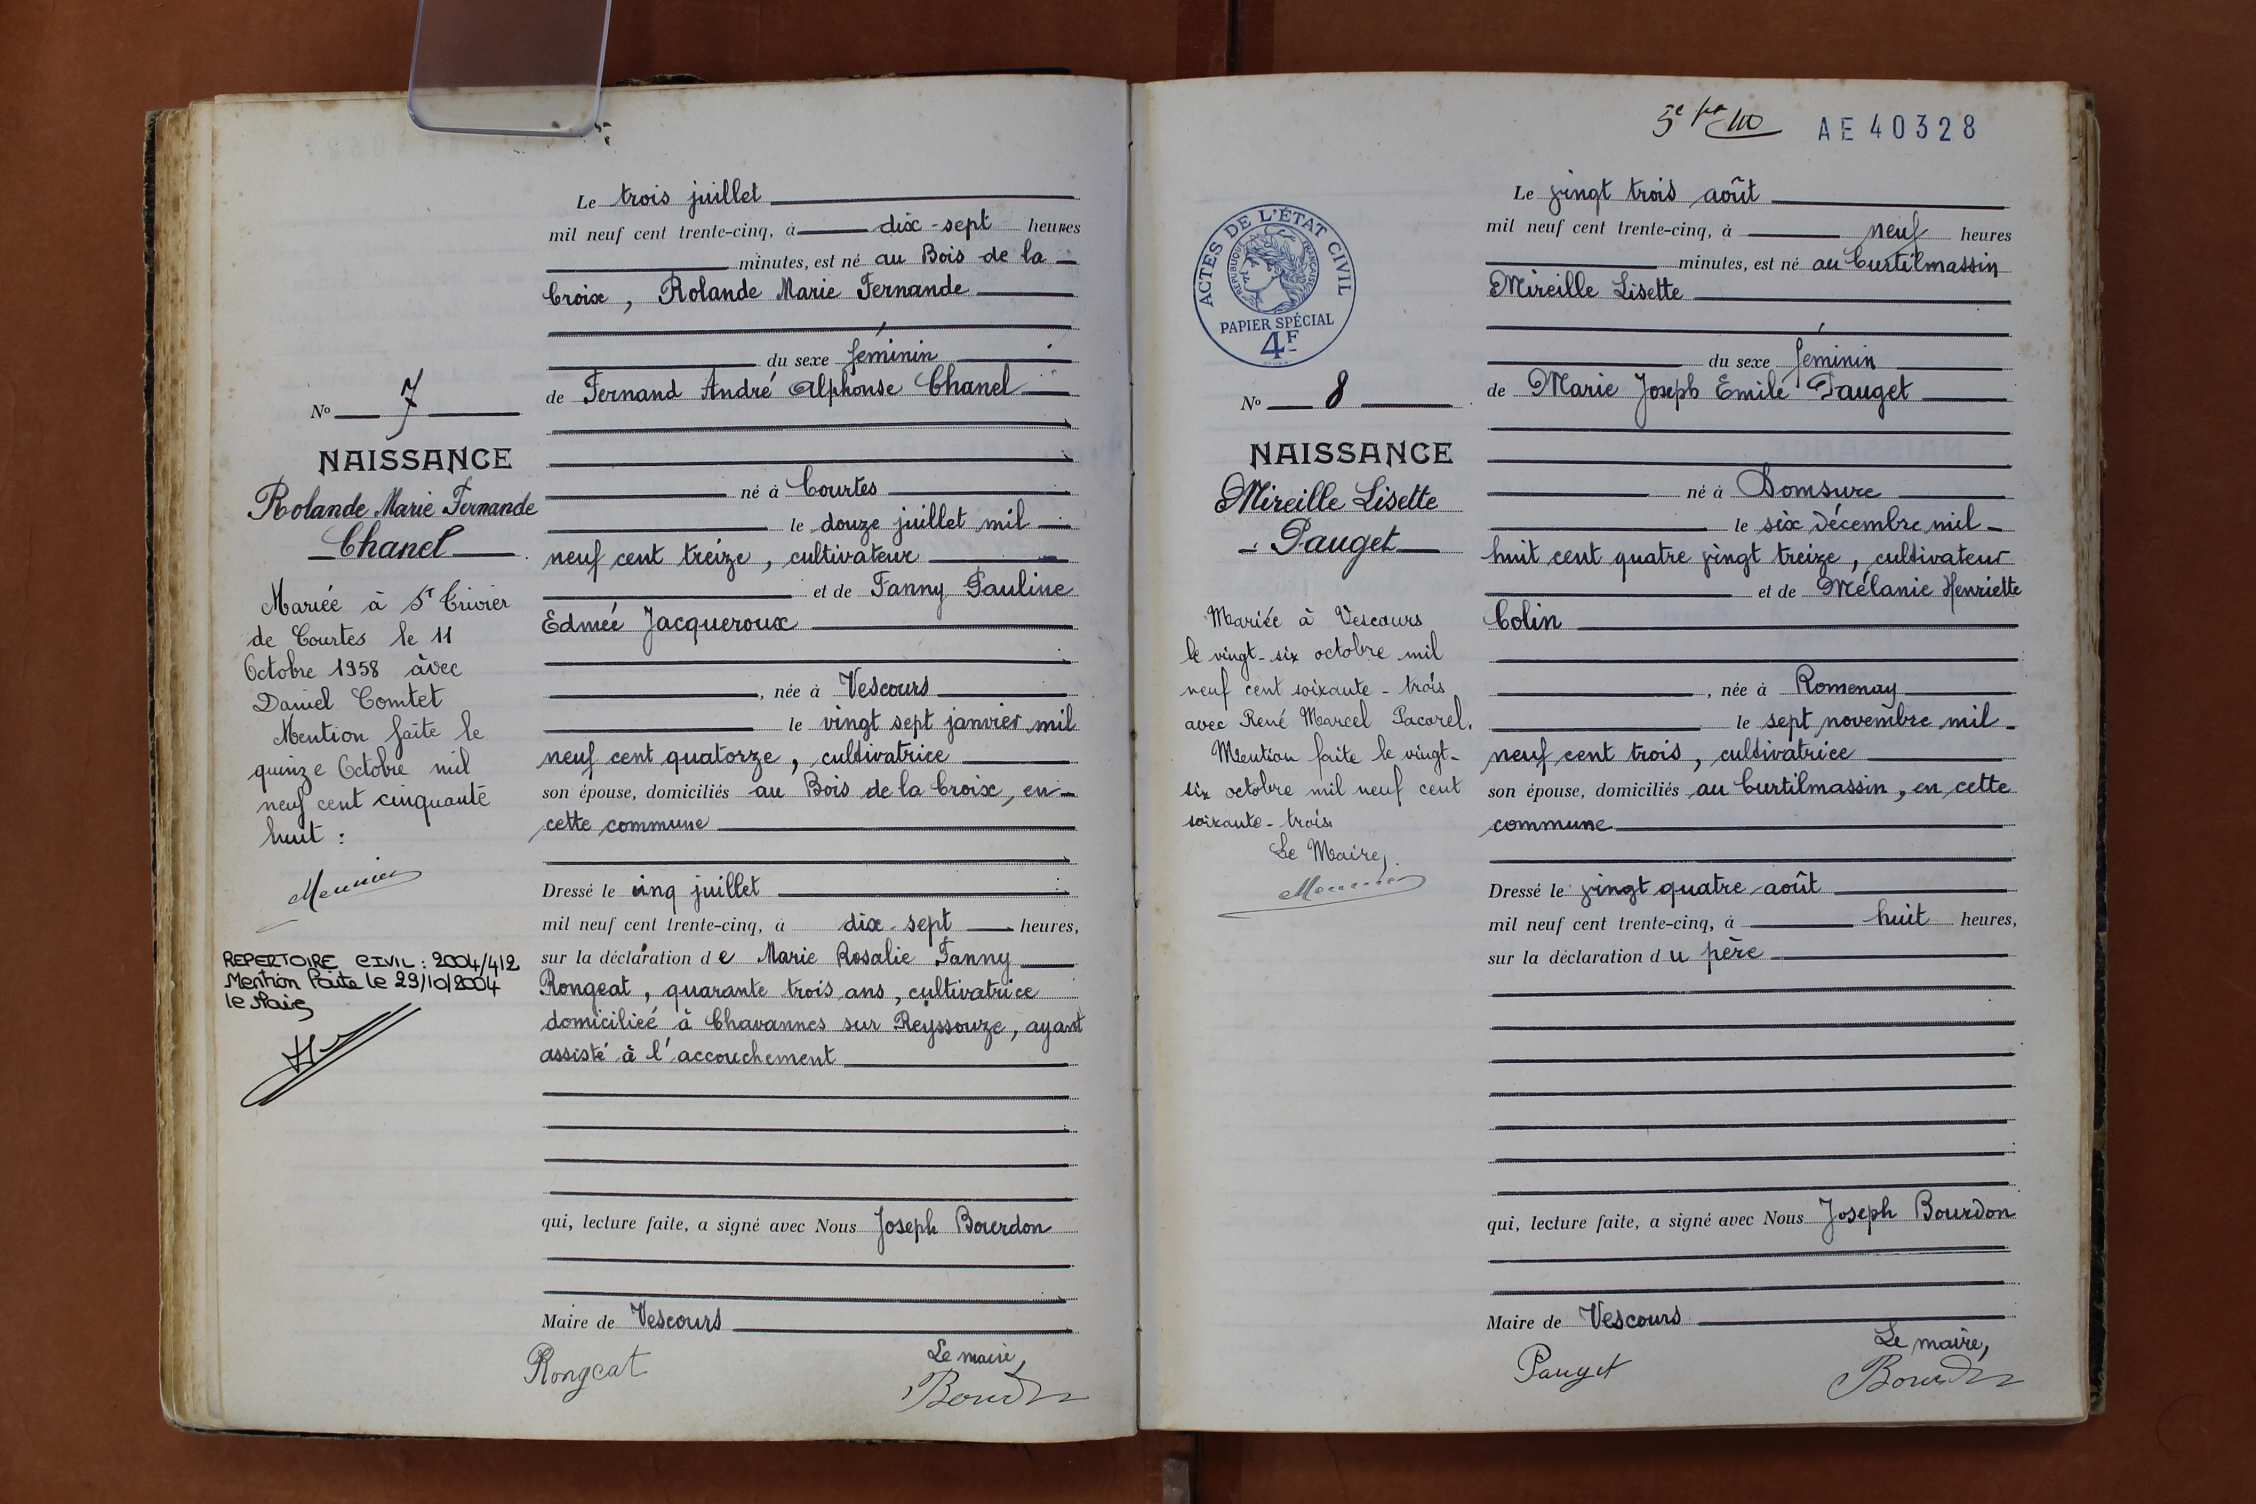 Le trois juillet
mil neuf cent trente-cinq, à dix-sept heures
minutes, est né au Bois de la
Croix, Rolande Marie Fernande
du sexe féminin
de Fernand André Alphonse Chanel
né à Courtes
le douze juillet mil
neuf cent treize, cultivateur
et de Fanny Pauline
Edmée Jacqueroux
, née à Vescours
le vingt sept janvier mil
neuf cent quatorze, cultivatrice
son épouse, domiciliés au Bois de la Croix, en
cette commune
Dressé le cinq juillet
mil neuf cent trente-cinq, à dix-sept heures,
sur la déclaration de Marie Rosalie Fanny
Rongeat, quarante trois ans, cultivatrice
domiciliée à Chavannes sur Reyssouze, ayant
assisté à l'accouchement
qui, lecture faite, a signé avec Nous Joseph Bourdon
Maire de Vescours
Rongeat
Le maire,
Bourdon
No 7
NAISSANCE
Rolande Marie Fernande
Chanel
Mariée à St Trivier
de Courtes le 11
Octobre 1958 avec
Daniel Comtet
Mention faite le
quinze Octobre mil
neuf cent cinquante
huit :
Meunier
REPERTOIRE CIVIL : 2004/412
Mention faite le 29/10/2004
le Maire
AE 40328
ACTES DE L'ÉTAT CIVIL
RÉPUBLIQUE FRANÇAISE
PAPIER SPÉCIAL
4F
No 8
NAISSANCE
Mireille Lisette
Pauget
Mariée à Vescours
le vingt-six octobre mil
neuf cent soixante-trois
avec René Marcel Pacorel.
Mention faite le vingt-
six octobre mil neuf cent
soixante-trois
Le Maire,
Meunier
Le vingt trois août
mil neuf cent trente-cinq, à neuf heures
minutes, est né au Curtilmassin
Mireille Lisette
du sexe féminin
de Marie Joseph Emile Pauget
né à Domsure
le six décembre mil
huit cent quatre vingt treize, cultivateur
et de Mélanie Henriette
Colin
, née à Romenay
le sept novembre mil
neuf cent trois, cultivatrice
son épouse, domiciliés au Curtilmassin, en cette
commune
Dressé le vingt quatre août
mil neuf cent trente-cinq, à huit heures,
sur la déclaration du père
qui, lecture faite, a signé avec Nous Joseph Bourdon
Maire de Vescours
Pauget
Le maire,
Bourdon